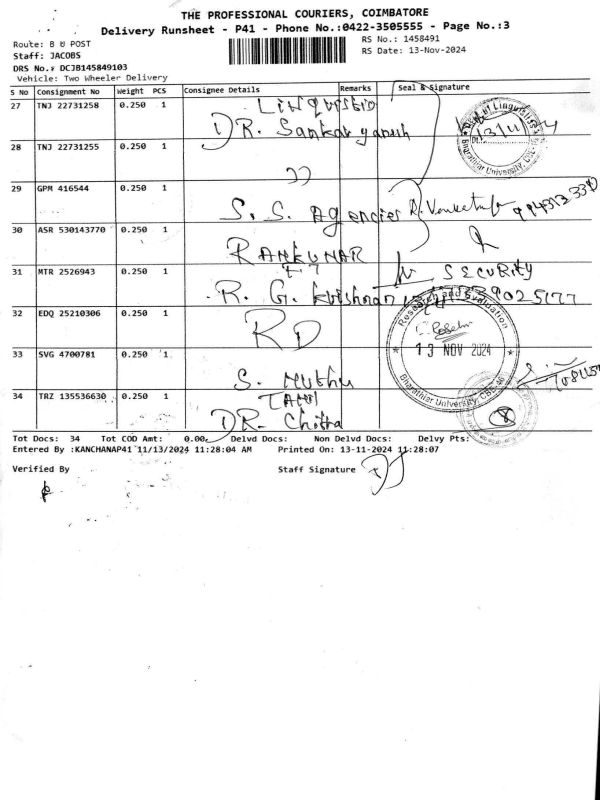 THE PROFESSIONAL COURIERS, COIMBATORE
Delivery Runsheet - P41 - Phone No.:0422-3505555 - Page No.:3
Route: B U POST
RS No.: 1458491
Staff: JACOBS
RS Date: 13-Nov-2024
DRS No.: DCJB145849103
Vehicle: Two Wheeler Delivery
S No Consignment No Weight PCS Consignee Details Remarks Seal & Signature
27 TNJ 22731258 0.250 1
DR. Sankar ganesh
Dept of Linguistics
13/11/24
Bharathiar University, CBE-46
28 TNJ 22731255 0.250 1
29 GPM 416544 0.250 1
S. S. Agencies
30 ASR 530143770 0.250 1
RAMKUMAR
31 MTR 2526943 0.250 1
SECURITY
R. G. Krishnan
32 EDQ 25210306 0.250 1
RD
Research and Evaluation
13 NOV 2024
Bharathiar University, CBE-46
33 SVG 4700781 0.250 1
S. Muthu
34 TRZ 135536630 0.250 1
TAMIL
DR. Chitra
Tot Docs: 34 Tot COD Amt: 0.00 Delvd Docs: Non Delvd Docs: Delvy Pts:
Entered By :KANCHANAP41 11/13/2024 11:28:04 AM Printed On: 13-11-2024 11:28:07
Verified By Staff Signature